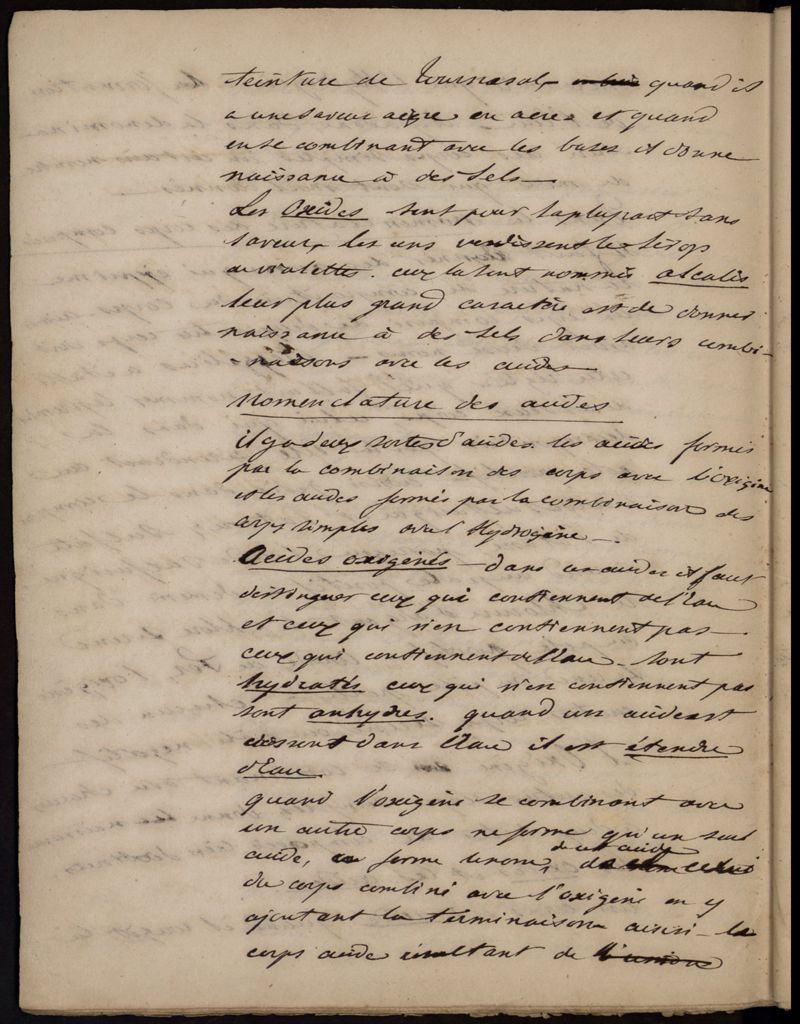 teinture de tournesol, quand il
a une saveur aigre ou acre et quand
en se combinant avec les bases il donne
naissance à des sels
Les Oxides sont pour la plupart sans
saveur, les uns verdissent le sirop
de violettes. ceux la sont nommés alcalis
leur plus grand caractère est de donner
naissance à des sels dans leurs combi-
-naisons avec les acides
Nomenclature des acides
il y a deux sortes d'acides. les acides formés
par la combinaison des corps avec l'oxigène
et les acides formés par la combinaison des
corps simples avec l'Hydrogène —
Acides oxigénés — dans ces acides il faut
distinguer ceux qui contiennent de l'eau
et ceux qui n'en contiennent pas
ceux qui contiennent de l'eau sont
hydratés ceux qui n'en contiennent pas
sont anhydres. quand un acide est
dissout dans l'eau il est étendu
d'Eau
quand l'oxigène se combinant avec
un autre corps ne forme qu'un seul
acide, on forme le nom, de cet acide de celui
du corps combiné avec l'oxigène en y
ajoutant la terminaison ainsi le
corps acide résultant de l'union